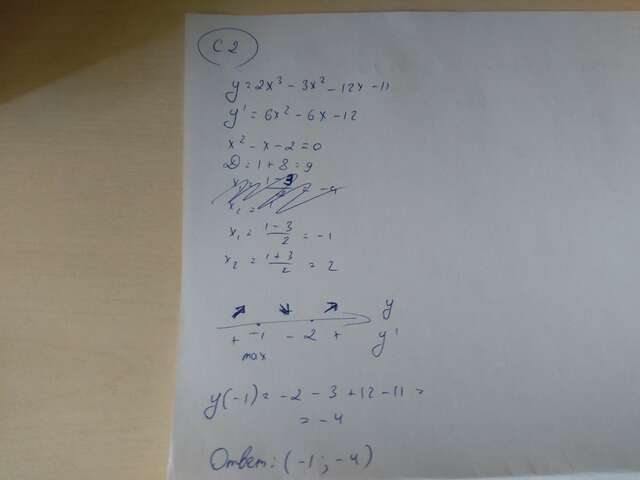 C2
y = 2x³ - 3x² - 12x - 11
y' = 6x² - 6x - 12
x² - x - 2 = 0
D = 1 + 8 = 9
x₁ = (1 - 3)/2 = -1
x₂ = (1 + 3)/2 = 2
↗ ↘ ↗ y
+ -1 - 2 + y'
max
y(-1) = -2 - 3 + 12 - 11 =
= -4
Ответ: (-1; -4)